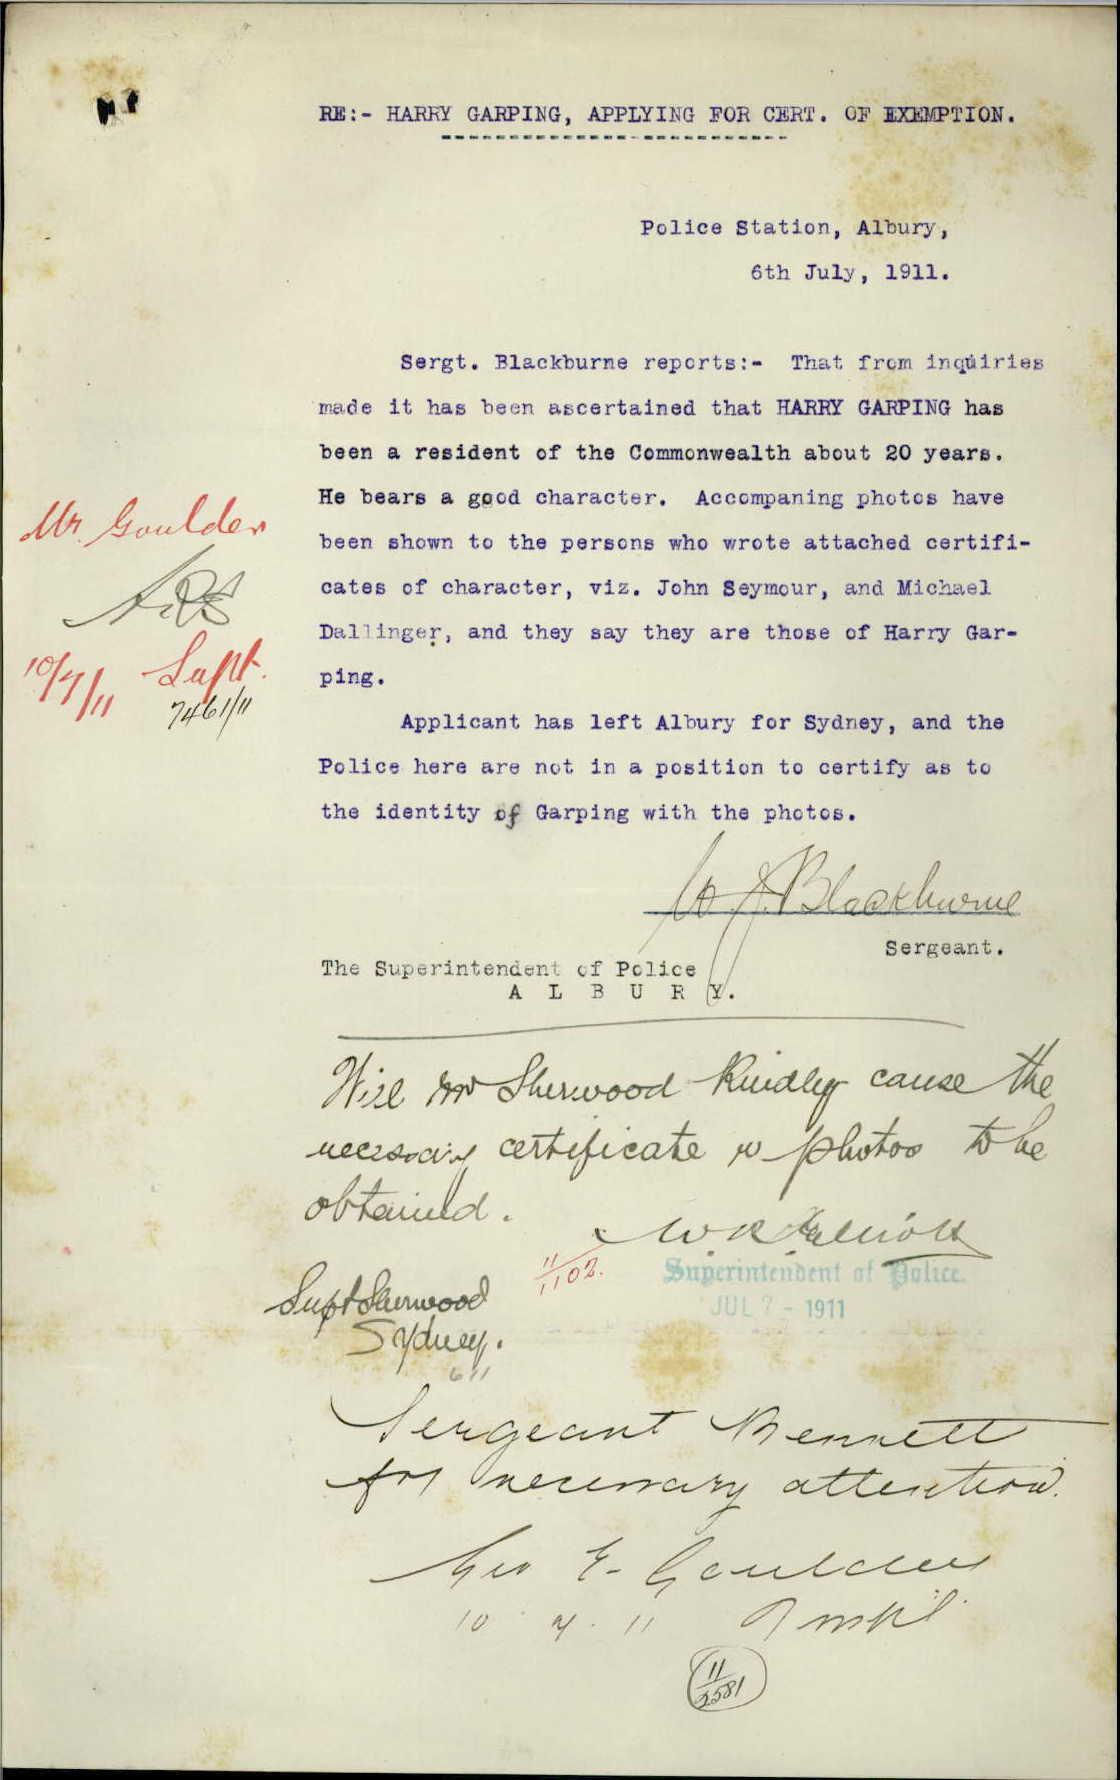 RE:- HARRY GARPING, APPLYING FOR CERT. OF EXEMPTION.
Police Station, Albury,
6th July, 1911.
Sergt. Blackburne reports:- That from inquiries
made it has been ascertained that HARRY GARPING has
been a resident of the Commonwealth about 20 years.
He bears a good character. Accompaning photos have
been shown to the persons who wrote attached certifi-
cates of character, viz. John Seymour, and Michael
Dallinger, and they say they are those of Harry Gar-
ping.
Applicant has left Albury for Sydney, and the
Police here are not in a position to certify as to
the identity of Garping with the photos.
Mr. Goulder
10/7/11 Supt.
7461/11
W J. Blackburne
Sergeant.
The Superintendent of Police
A L B U R Y.
Will Mr Sherwood Kindly cause the
necessary certificate photos to be
obtained.
11/1102.
Superintendent of Police.
JUL 7 - 1911
Supt Sherwood
Sydney.
Sergeant Bennett
for necessary attention.
Geo E. Goulder
10 . 7 . 11
11/2581